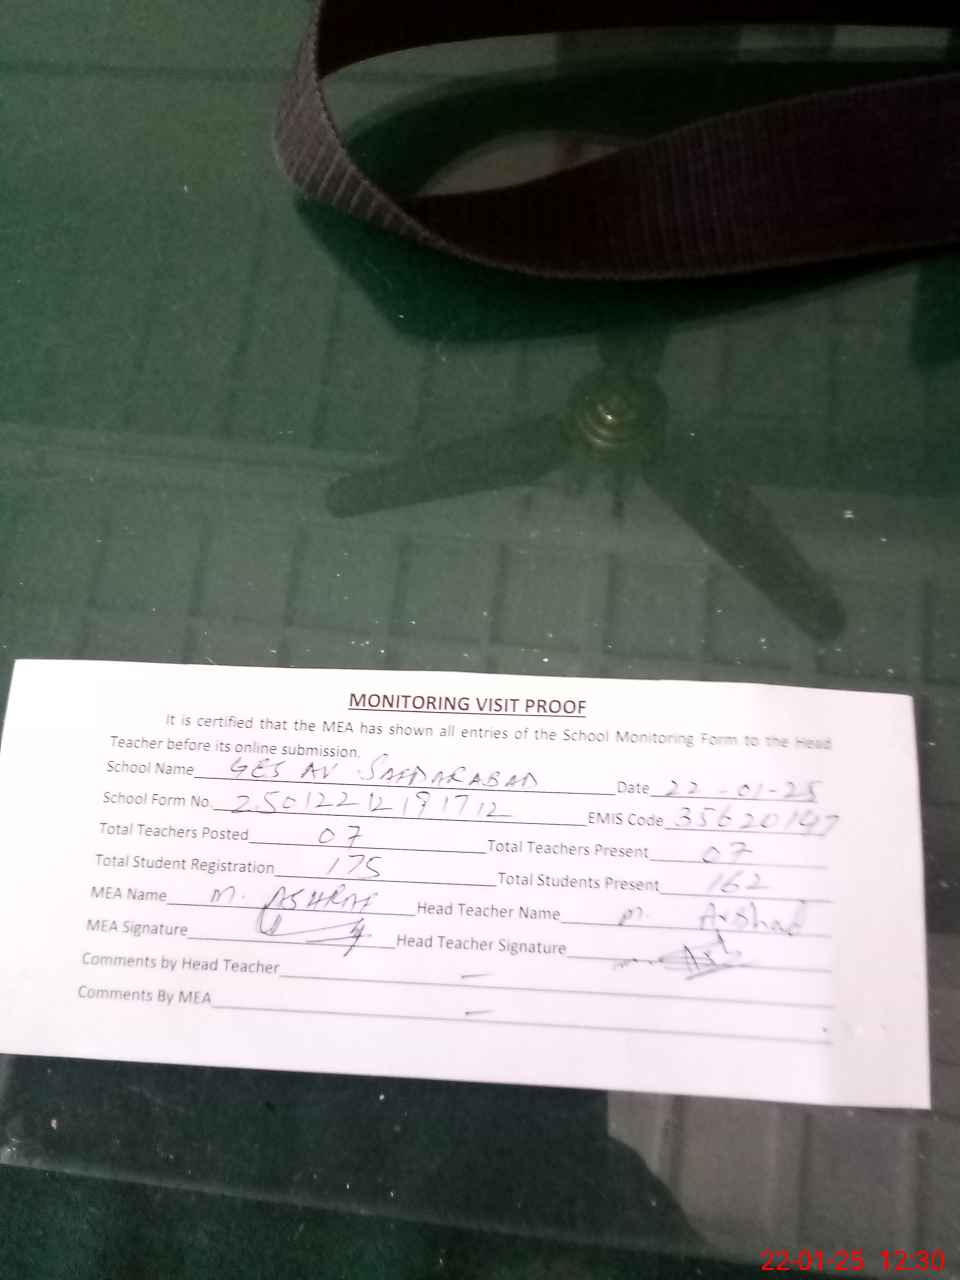 MONITORING VISIT PROOF
It is certified that the MEA has shown all entries of the School Monitoring Form to the Head
Teacher before its online submission.
School Name GES AV SAFDARABAD Date 22-01-25
School Form No. 2501221219 1712 EMIS Code 35620147
Total Teachers Posted 07 Total Teachers Present 07
Total Student Registration 175 Total Students Present 162
MEA Name M. ASHRAF Head Teacher Name M. Arshad
MEA Signature Head Teacher Signature
Comments by Head Teacher —
Comments By MEA —
22-01-25 12:30